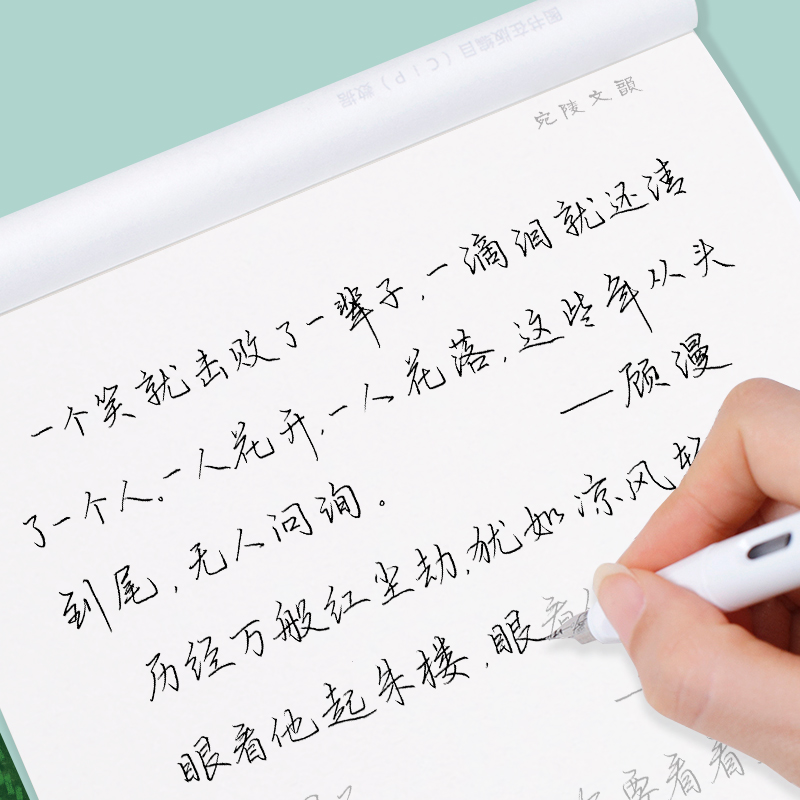 图书在版编目（CIP）数据
宛陵文韻
一个笑就击败了一辈子，一滴泪就还清
了一个人。一人花开，一人花落，这些年从头
到尾，无人问询。
——顾漫
历经万般红尘劫，犹如凉风
眼看他起朱楼，眼看
看看